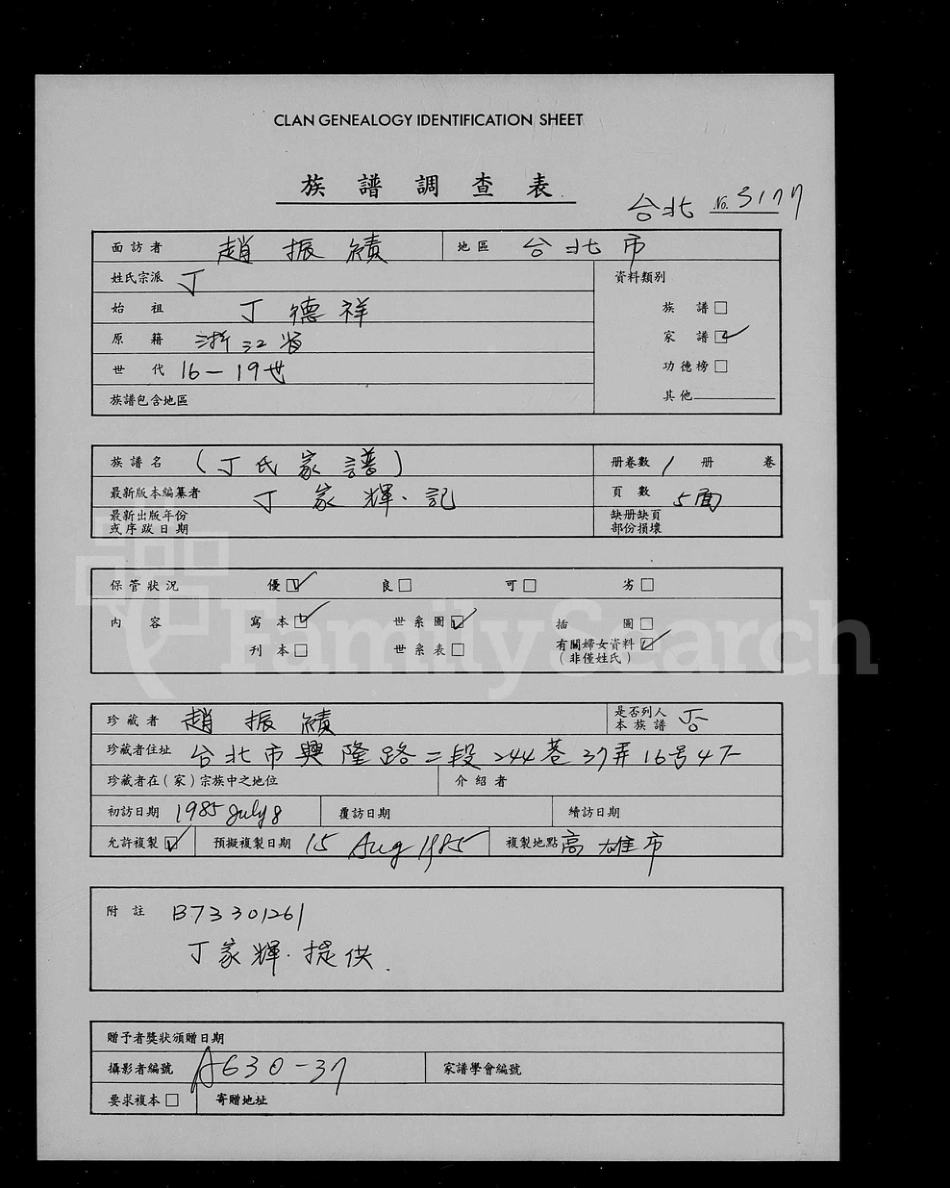 CLAN GENEALOGY IDENTIFICATION SHEET
族譜調查表
台北 No. 3177
面訪者 趙振績 地區 台北市
姓氏宗派 丁 資料類別
始祖 丁德祥 族譜□
原籍 浙江省 家譜☑
世代 16-19世 功德榜□
族譜包含地區 其他
族譜名 (丁氏家譜) 册卷數 1 册 卷
最新版本編纂者 丁家輝.記 頁數 5面
最新出版年份 缺册缺頁
或序跋日期 部份損壞
保管狀況 優☑ 良□ 可□ 劣□
內容 寫本☑ 世系圖☑ 插圖□
刊本□ 世系表□ 有關婦女資料☑
(非僅姓氏)
FamilySearch
珍藏者 趙振績 是否列入本族譜 否
珍藏者住址 台北市興隆路二段244巷37弄16号4F
珍藏者在(家)宗族中之地位 介紹者
初訪日期 1985 July 8 覆訪日期 續訪日期
允許複製☑ 預擬複製日期 15 Aug 1985 複製地點 高雄市
附註 B73301261
丁家輝.提供.
贈予者獎狀頒贈日期
攝影者編號 A630-37 家譜學會編號
要求複本□ 寄贈地址